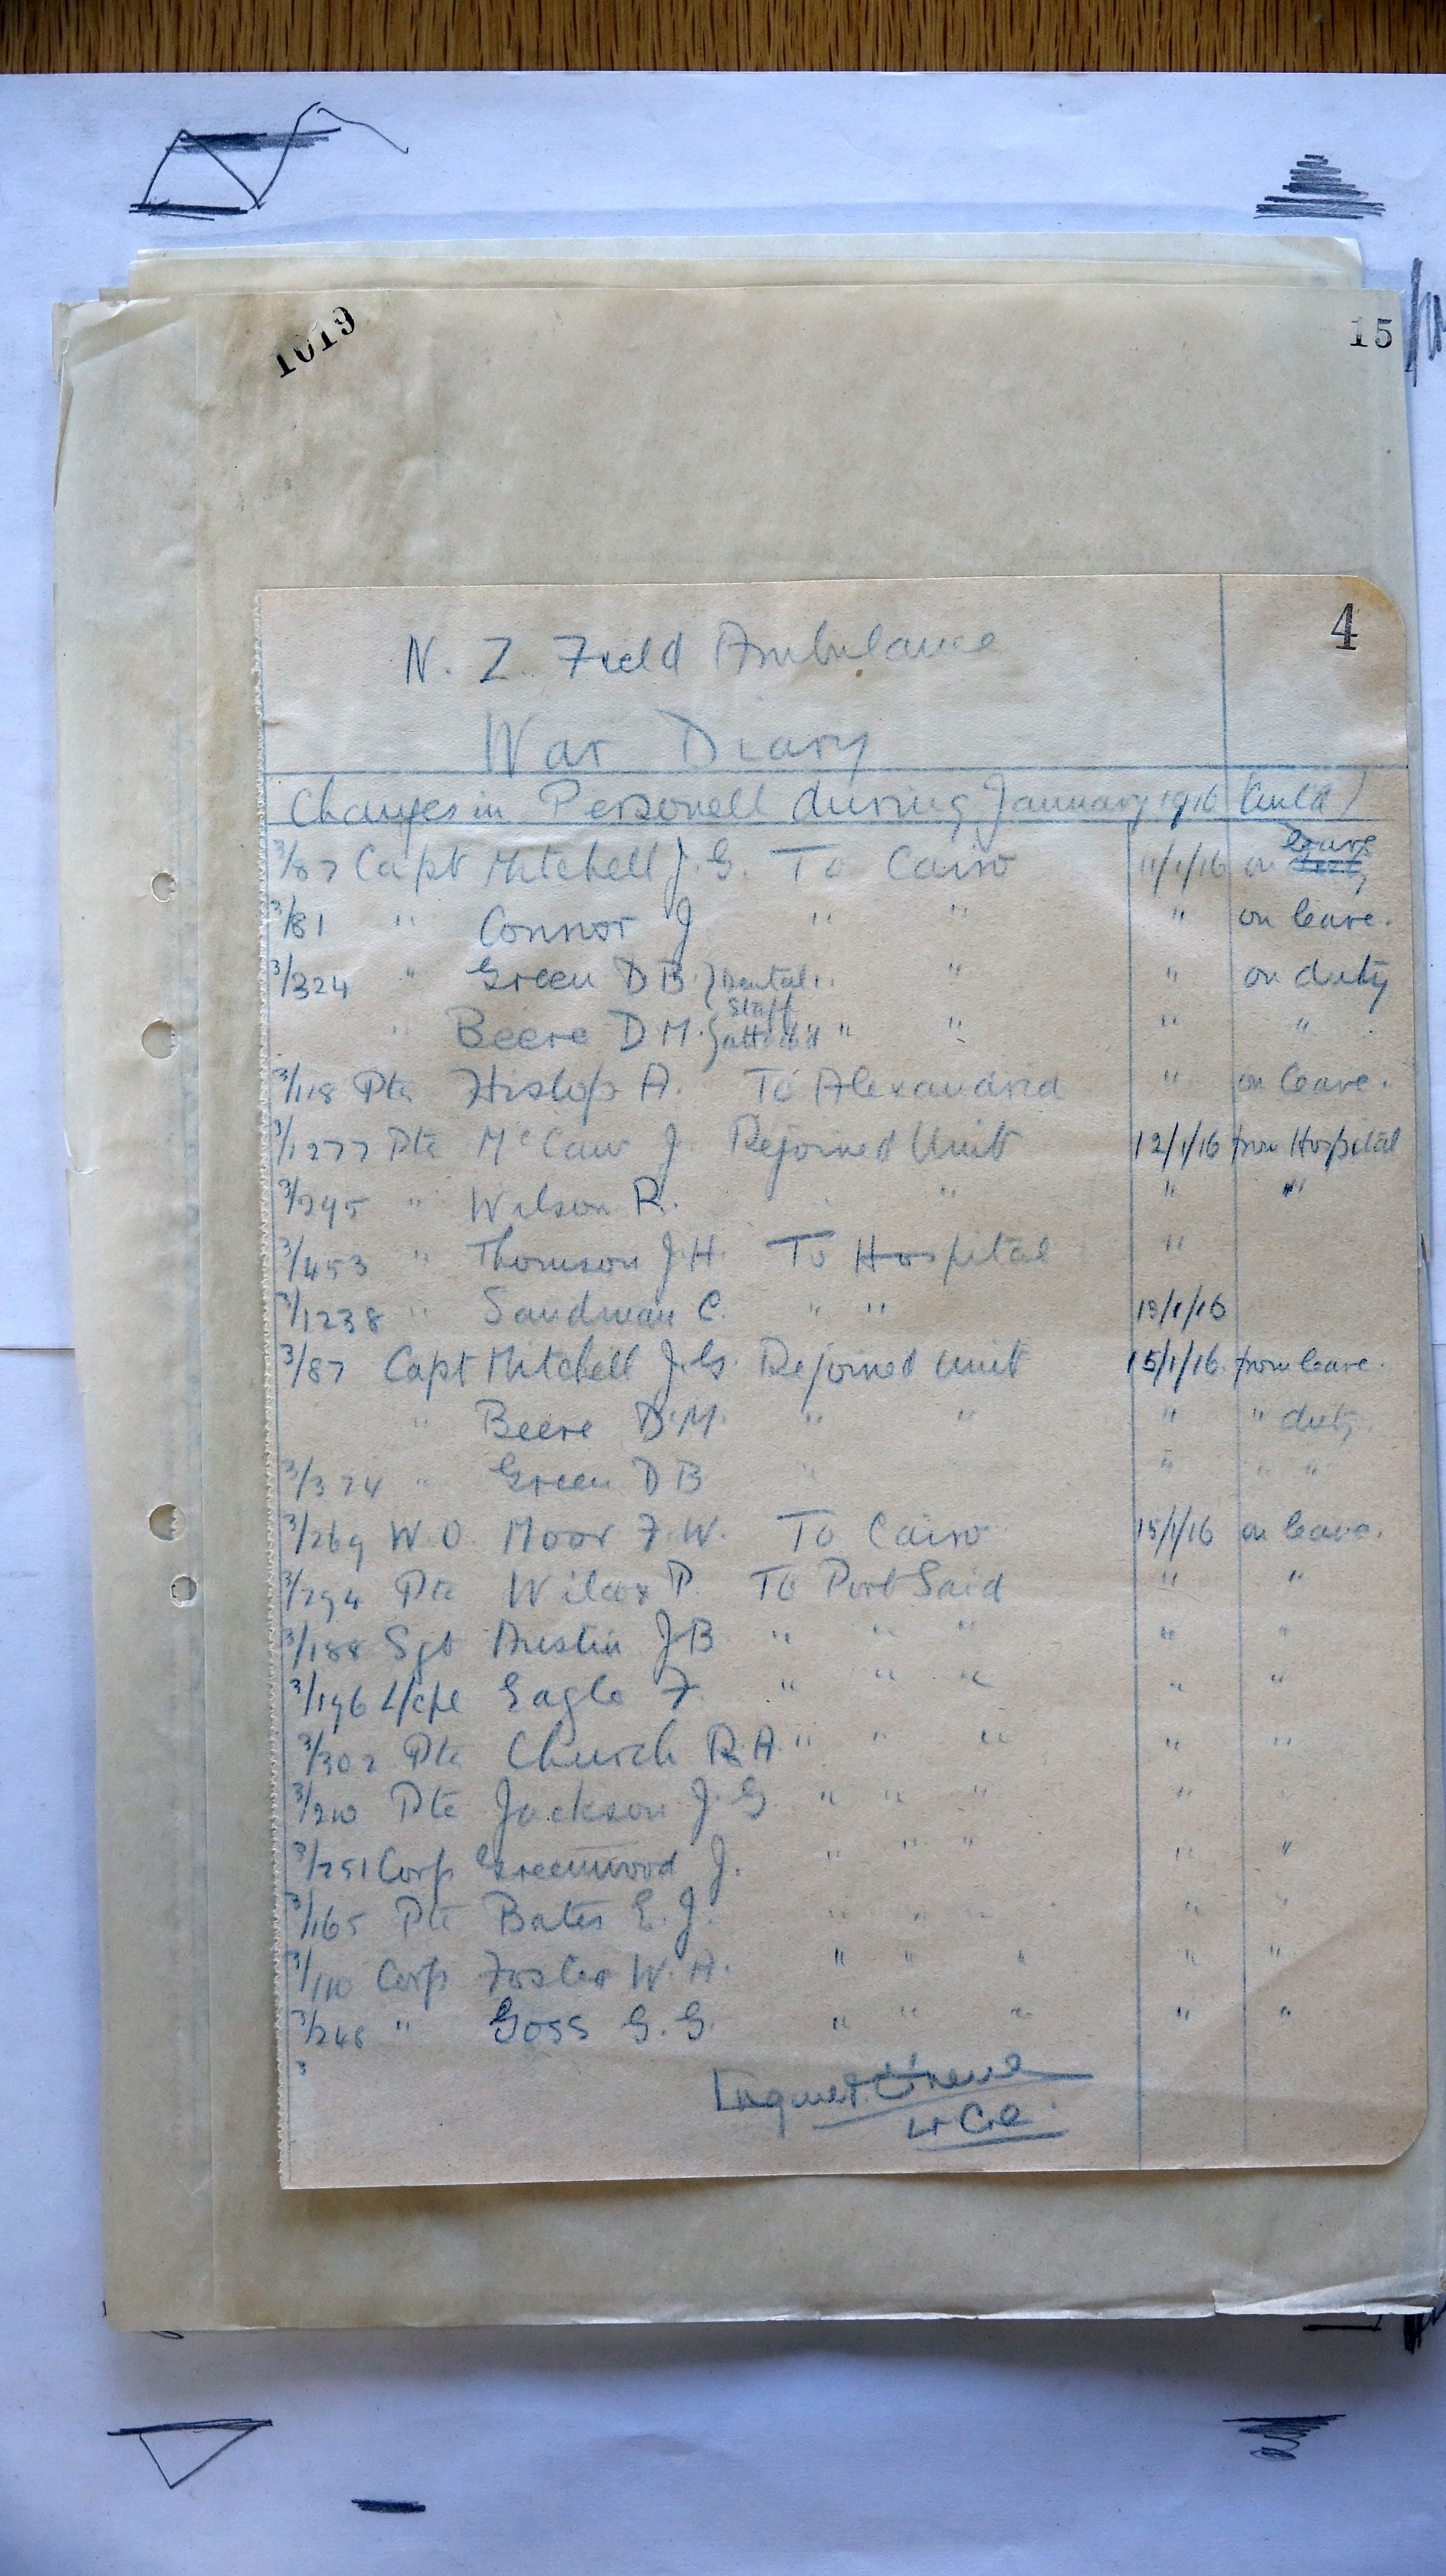 1019
15
4
N. Z. Field Ambulance
War Diary
Changes in Personell during January 1916 (Contd)
3/87 Capt Mitchell J. G. To Cairo 11/1/16 on leave
3/81 " Connor J " " " on leave.
3/324 " Green D B. } Dental " " " on duty
Staff
" Beere D M. } attach'd " " " "
3/118 Pte Hislop A. To Alexandria " on leave.
3/1277 Pte McCaw J. Rejoined Unit 12/1/16 from Hospital
3/295 " Wilson R. " " " "
3/453 " Thomson J. H. To Hospital "
3/1238 " Sandman C. " " 13/1/16
3/87 Capt Mitchell J. G. Rejoined Unit 15/1/16. from leave.
" Beere D. M. " " " " duty
3/324 " Green D B " " " "
3/269 W. O. Moor F. W. To Cairo 15/1/16 on leave.
3/294 Pte Wilcox P. To Port Said " "
3/188 Sgt Austin J B " " " " "
3/196 L/cpl Eagle F. " " " " "
3/302 Pte Church R. A " " " " "
3/210 Pte Jackson J. G " " " " "
3/251 Corp Greenwood J. " " " " "
3/165 Pte Bates E. J. " " " " "
3/110 Corp Foster W. A. " " " " "
3/248 " Goss G. G. " " " " "
3
Lt Col